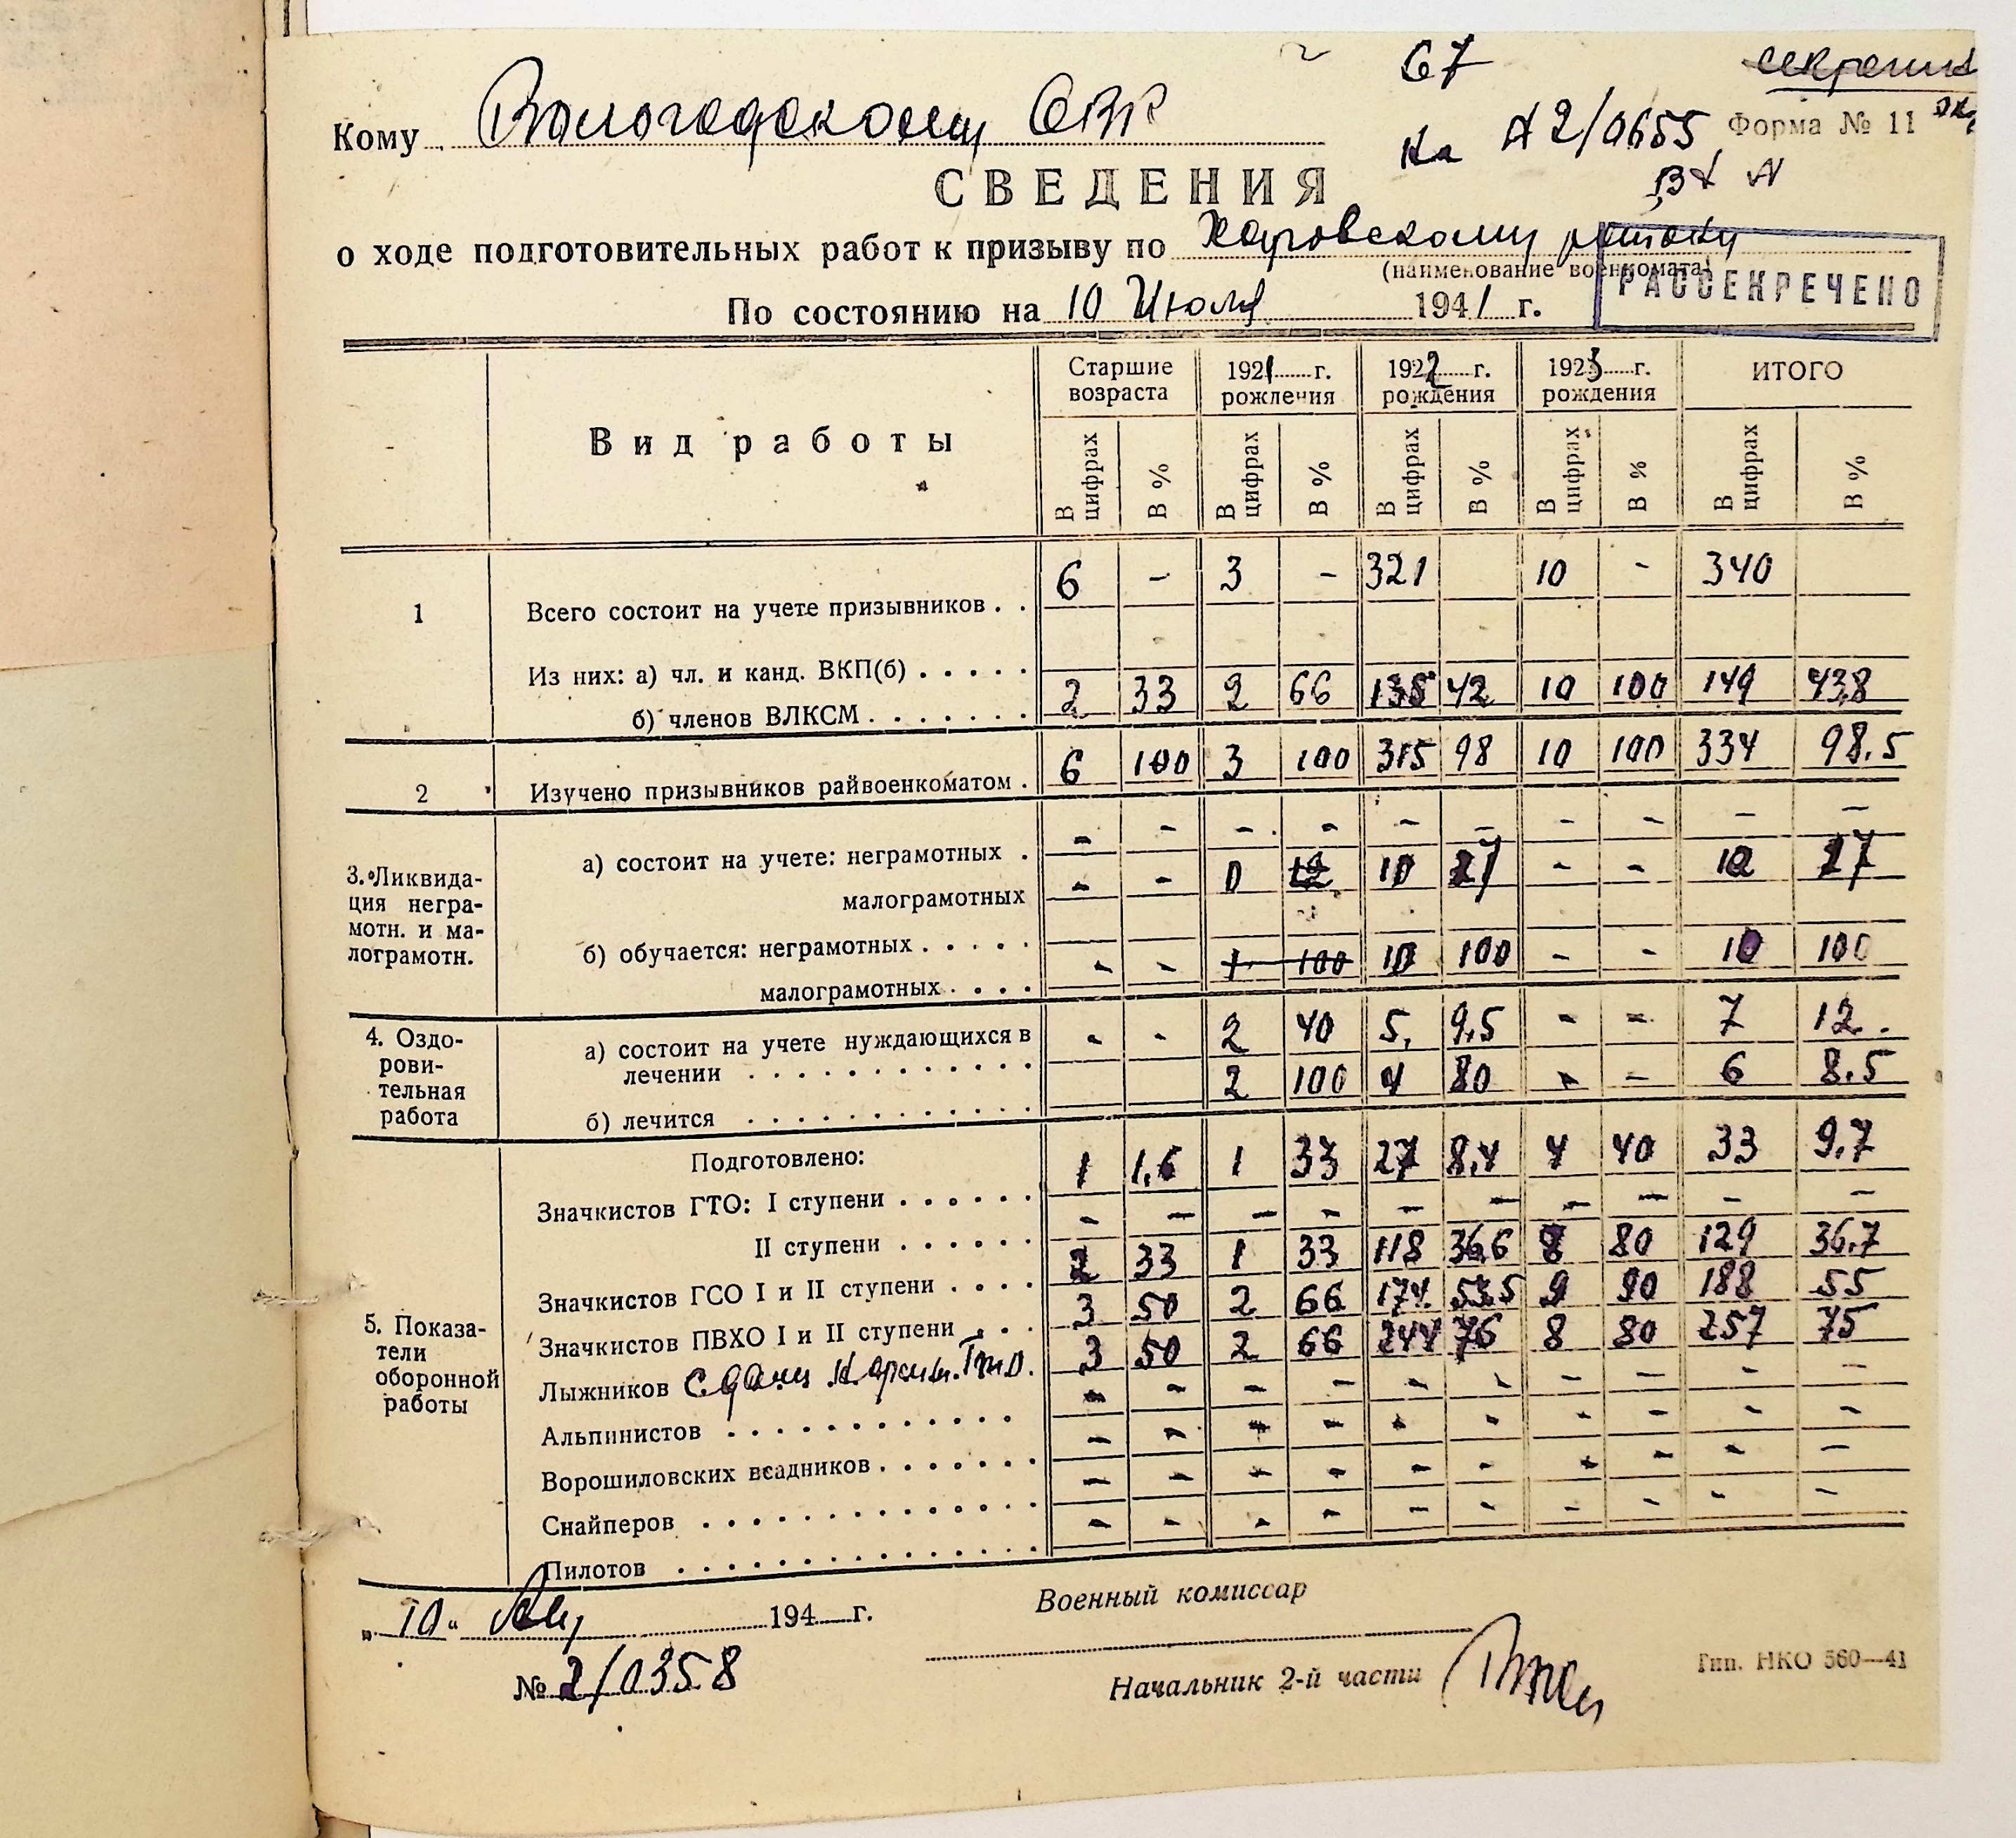 67
секретно
Кому Вологодскому ОВК
На А2/0655 Форма № 11 экз
СВЕДЕНИЯ
о ходе подготовительных работ к призыву по Харовскому
(наименование военкомата)
РАССЕКРЕЧЕНО
По состоянию на 10 Июля 1941 г.
Вид работы
Старшие возраста 1921 г. рождения 1922 г. рождения 1923 г. рождения ИТОГО
В цифрах В % В цифрах В % В цифрах В % В цифрах В % В цифрах В %
1 Всего состоит на учете призывников . . 6 - 3 - 321 10 - 340
Из них: а) чл. и канд. ВКП(б) . . . . .
б) членов ВЛКСМ . . . . . . . 2 33 2 66 135 42 10 100 149 43,8
2 Изучено призывников райвоенкоматом . 6 100 3 100 315 98 10 100 334 98.5
3. Ликвидация неграмотн. и малограмотн.
а) состоит на учете: неграмотных . - - - - - - - - - -
малограмотных - - 0 12 10 27 - - 10 27
б) обучается: неграмотных . . . . .
малограмотных . . . . - - 1 100 10 100 - - 10 100
4. Оздоровительная работа
а) состоит на учете нуждающихся в лечении . . . . . . . . . . . . - - 2 40 5. 9,5 - - 7 12.
б) лечится . . . . . . . . . . . . 2 100 4 80 - - 6 8.5
5. Показатели оборонной работы
Подготовлено:
Значкистов ГТО: I ступени . . . . . . 1 1,6 1 33 27 8,4 4 40 33 9.7
II ступени . . . . . . - - - - - - - - - -
Значкистов ГСО I и II ступени . . . . 2 33 1 33 118 36,6 8 80 129 36,7
Значкистов ПВХО I и II ступени . . . 3 50 2 66 174. 53.5 9 90 188 55
Лыжников сдали Норми. Гто. 3 50 2 66 244 76 8 80 257 75
Альпинистов . . . . . . . . . . . . - - - - - - - - - -
Ворошиловских всадников . . . . . . . - - - - - - - - - -
Снайперов . . . . . . . . . . . . . - - - - - - - - - -
Пилотов . . . . . . . . . . . . . . - - - - - - - - - -
„ 10 “ 194 г.
Военный комиссар
№ 2/0358
Начальник 2-й части
Тип. НКО 560—41